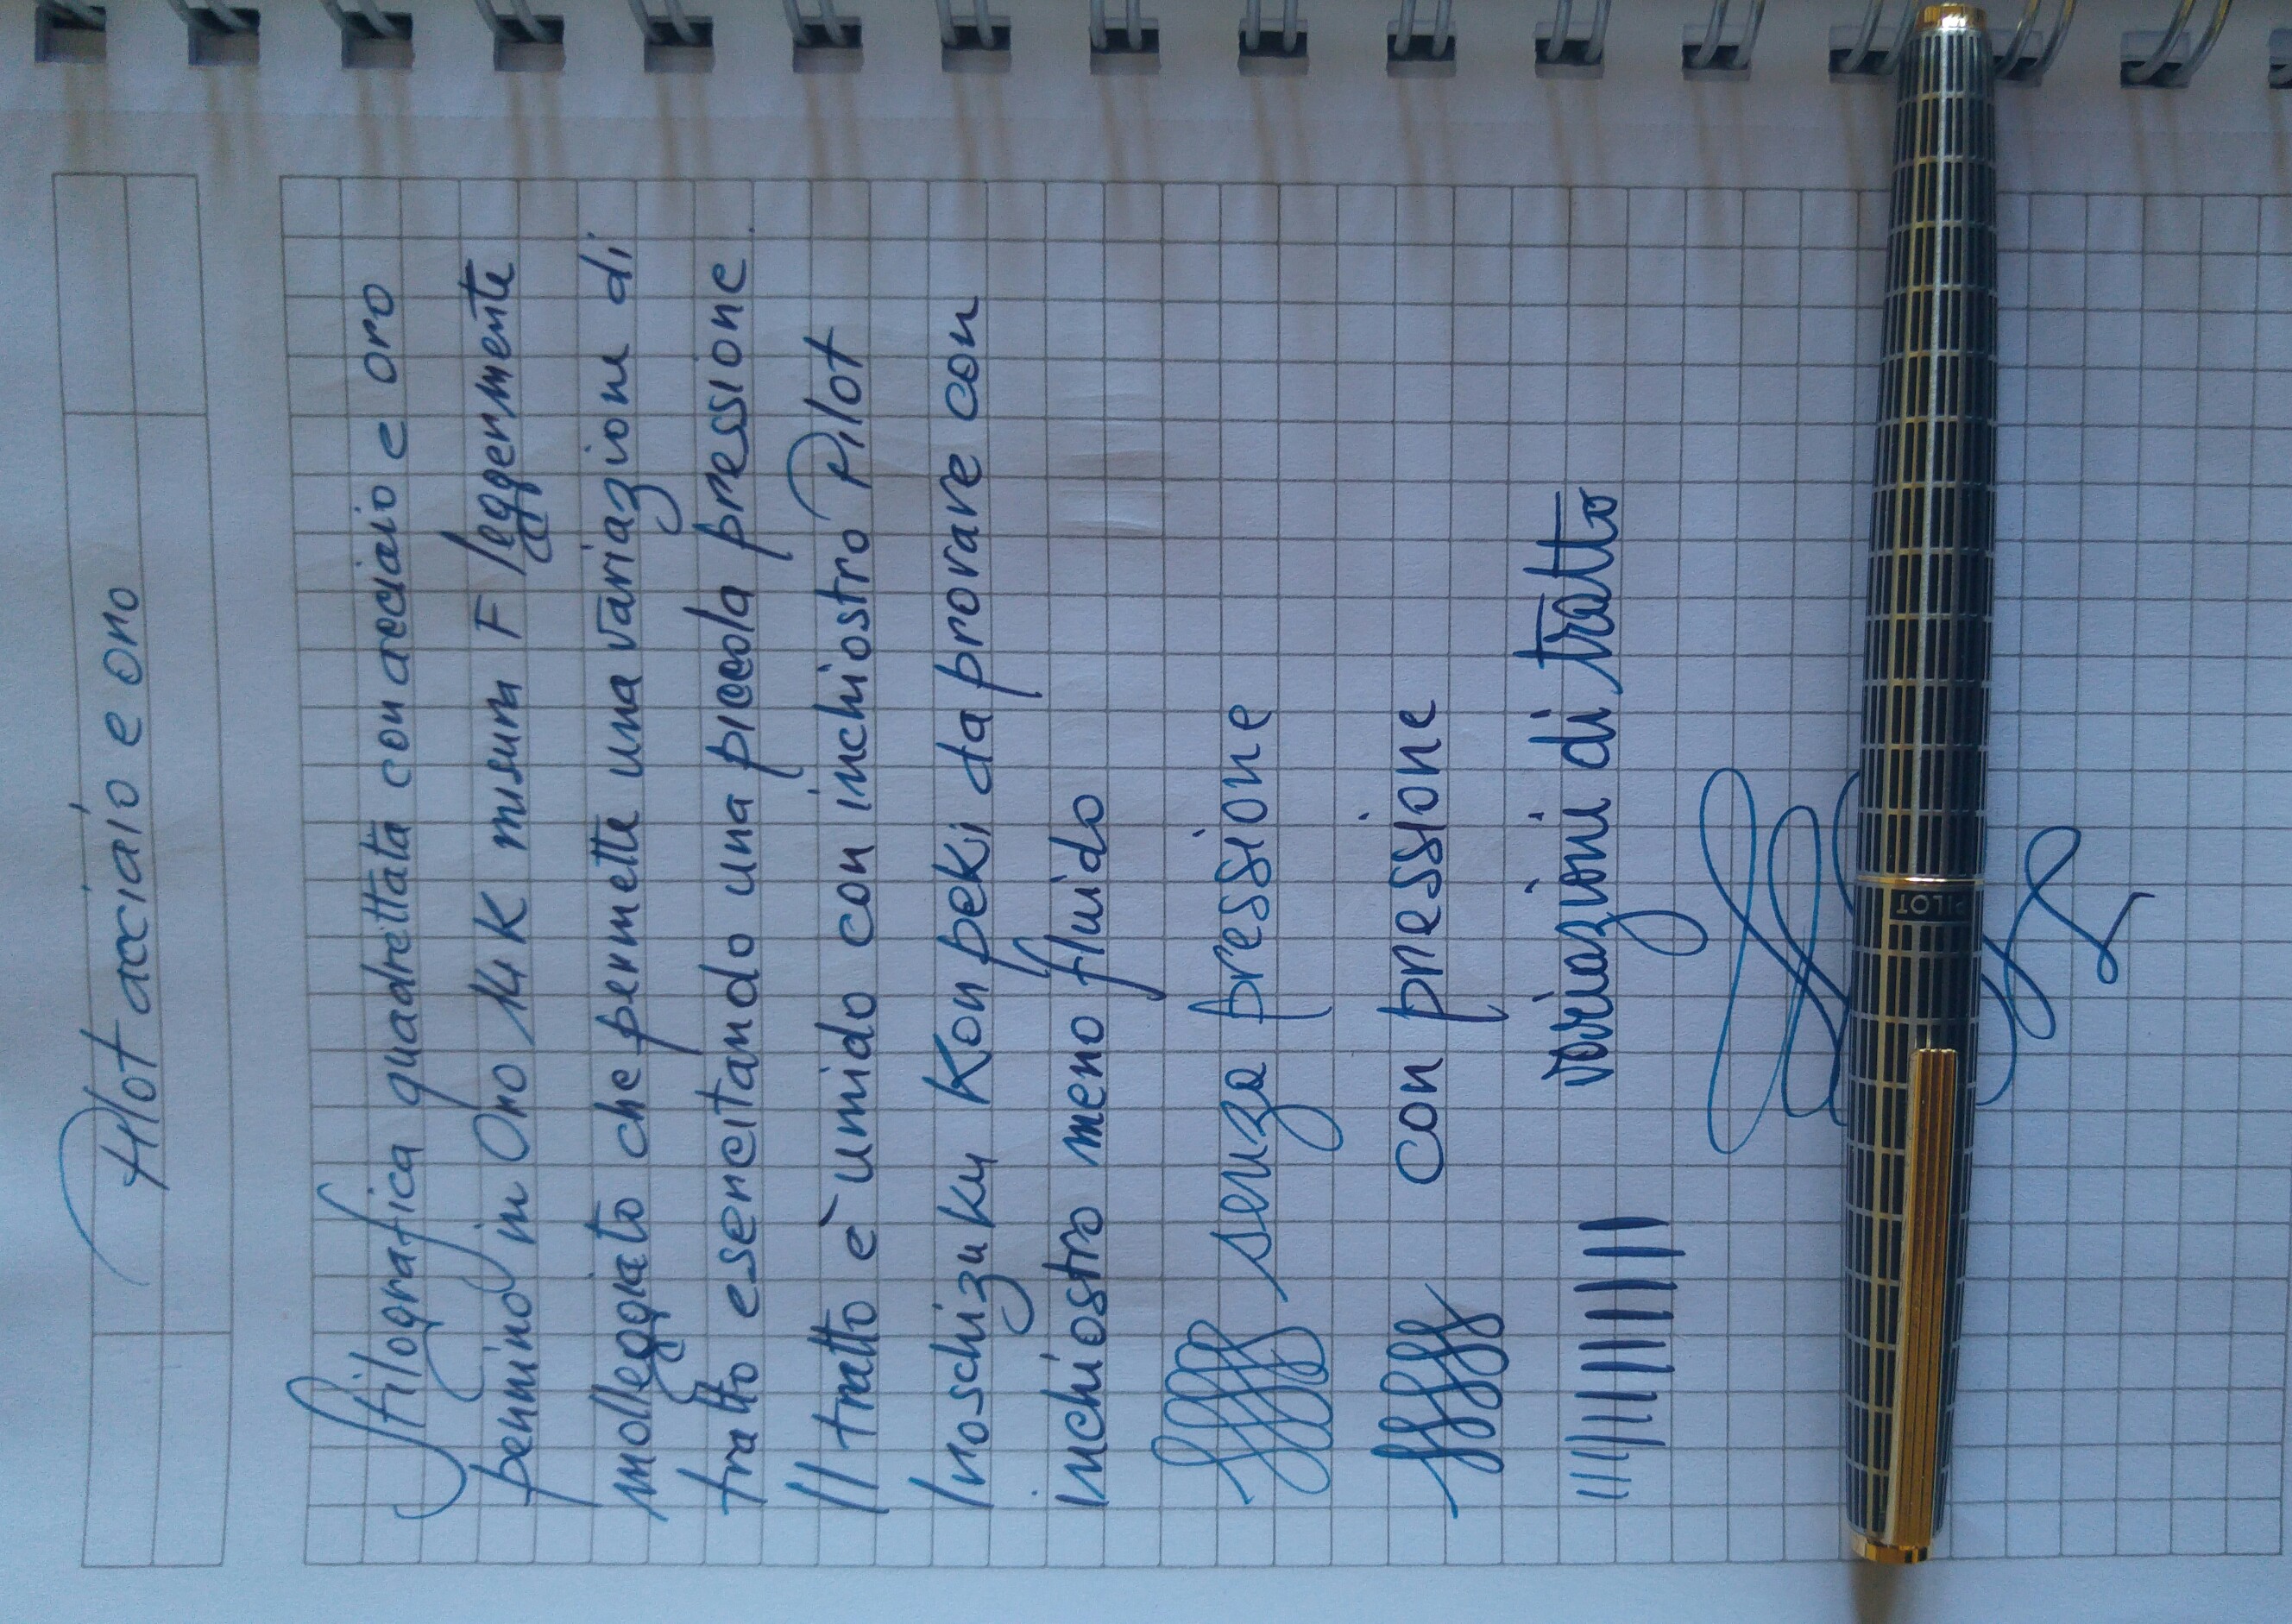 Pilot acciaio e oro
Stilografica quadrettata con acciaio e oro
pennino in Oro 14K misura F leggermente
molleggiato che permette una variazione di
tratto esercitando una piccola pressione.
Il tratto è umido con inchiostro Pilot
Iroschizuku Kon peki da provare con
inchiostro meno fluido
senza pressione
con pressione
variazioni di tratto
PILOT